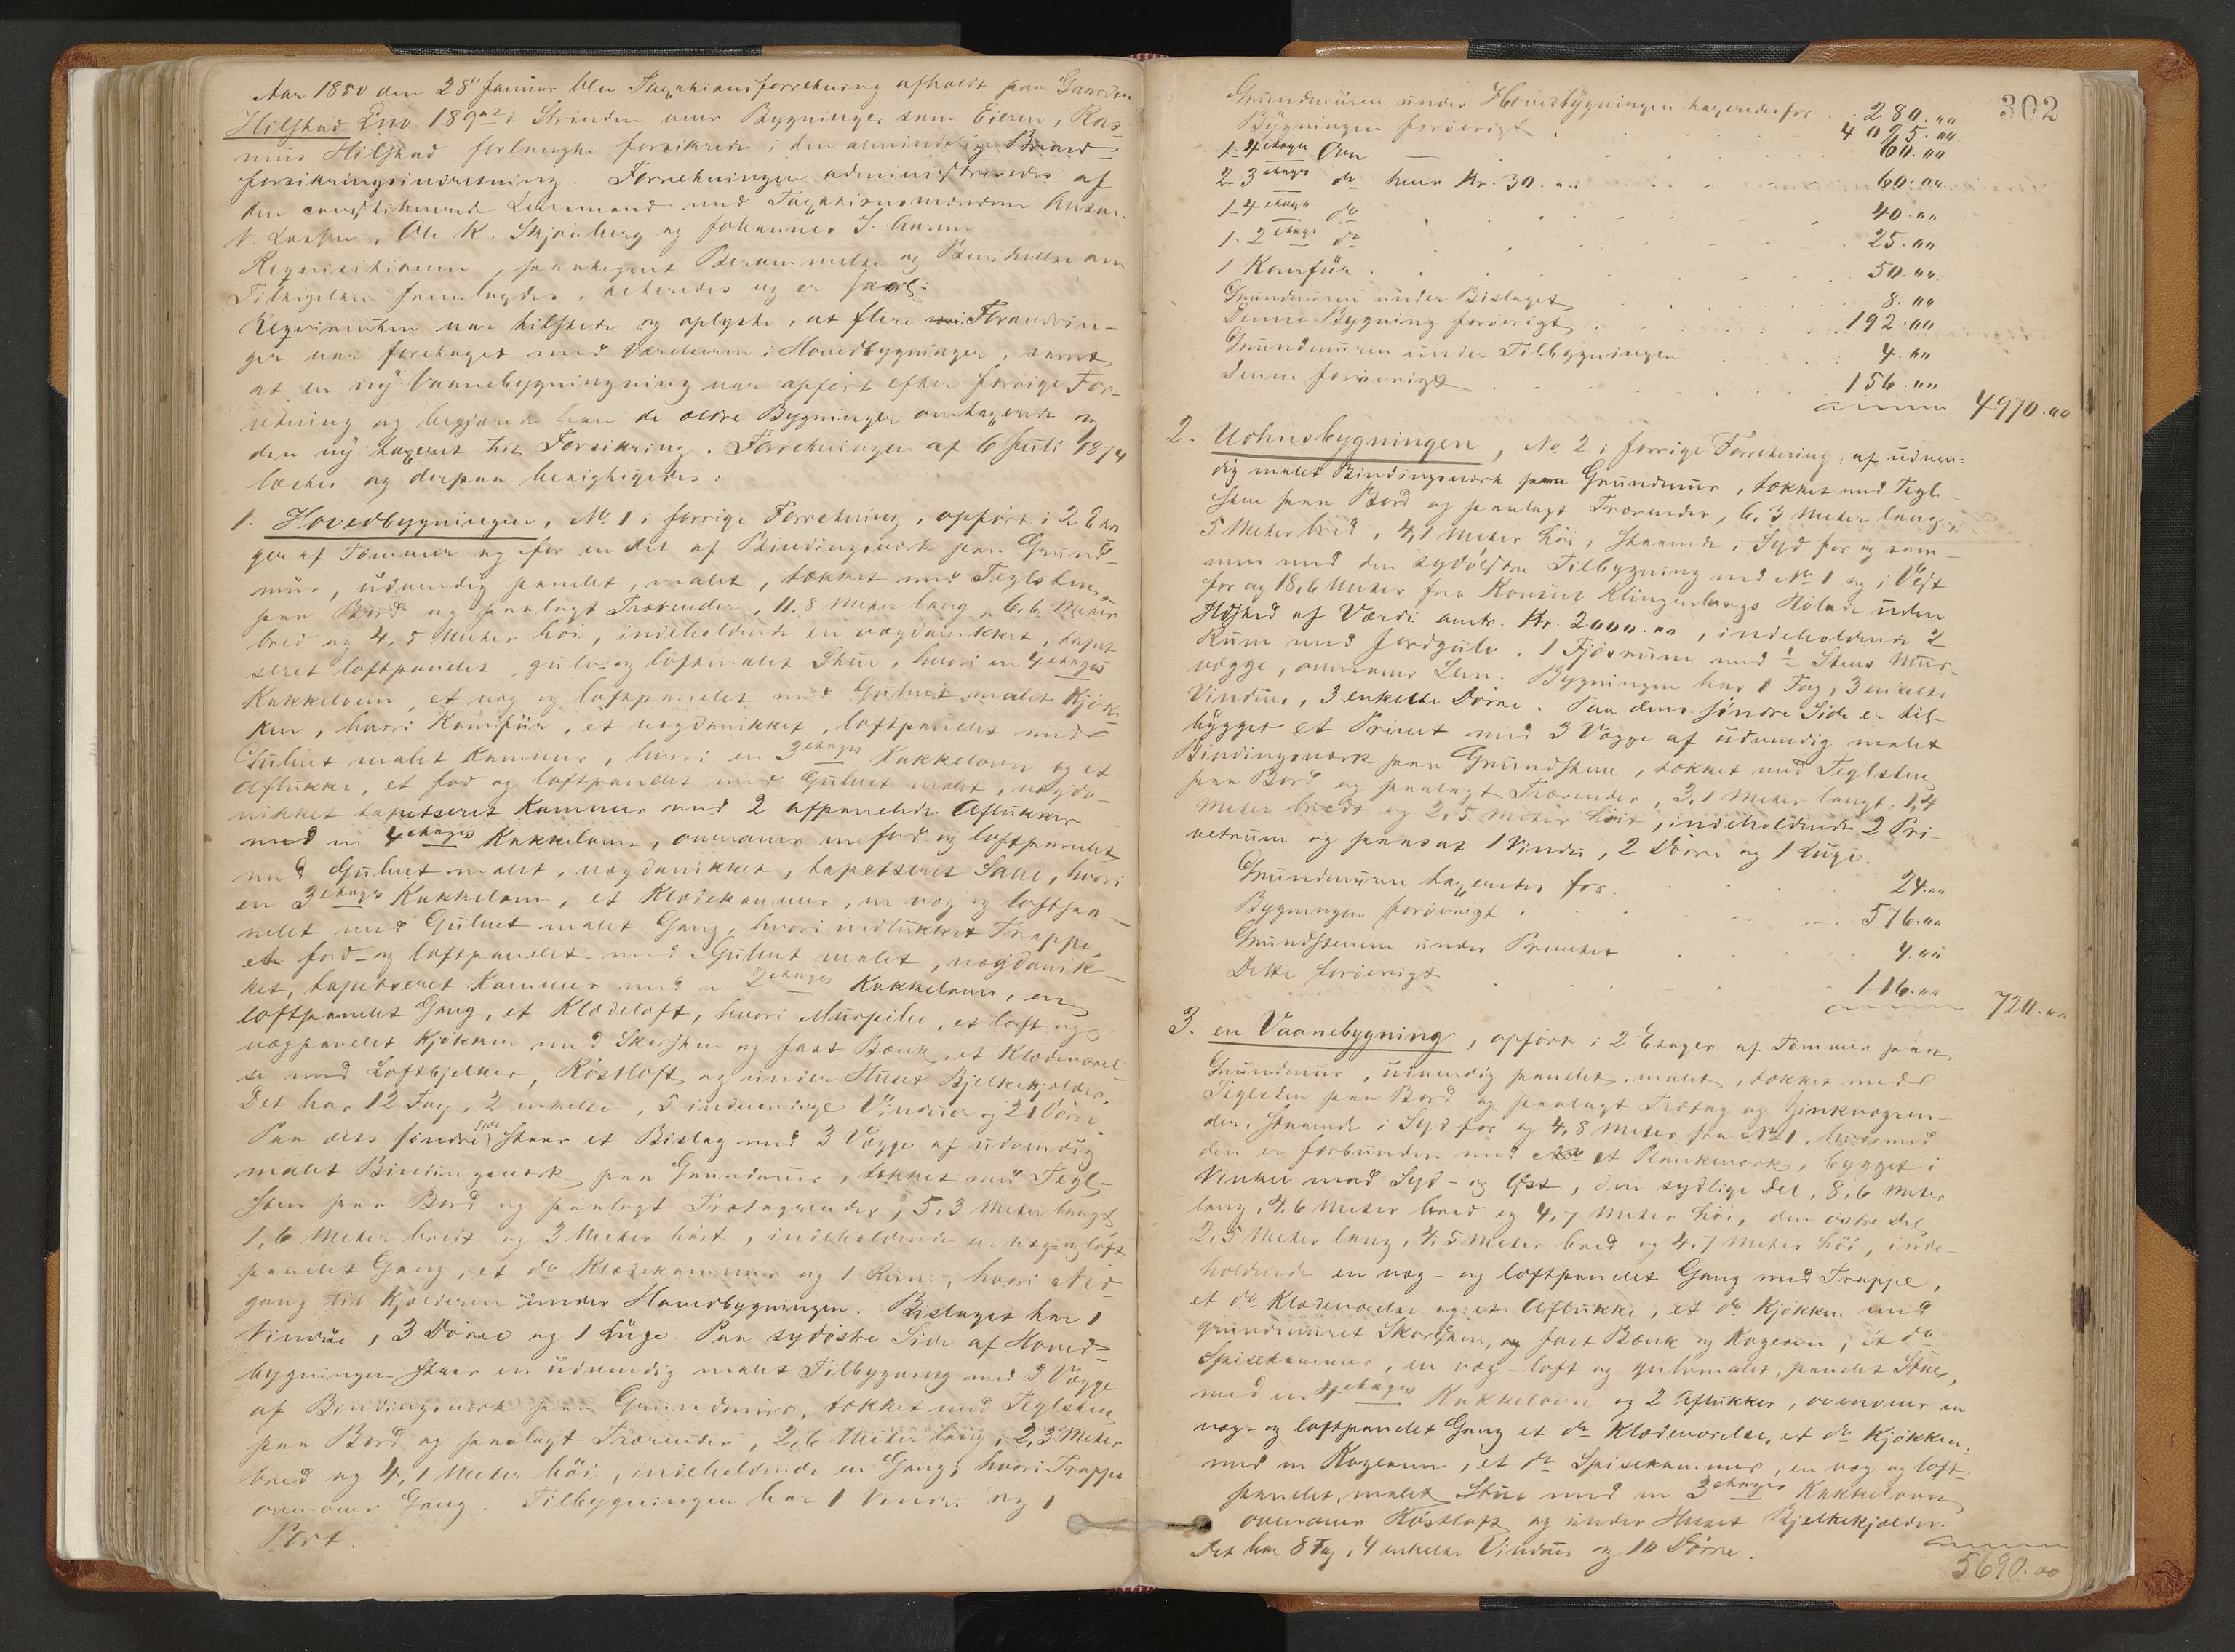 Aar 1880 den 28 Januar blev Taxationsforretning afholdt paa Gaarden
Hilstad Lno 189 a 2 i Strinden over Bygninger som Eieren, Ras-
mus Hilstad forlangte forsikrede i den almindelige Brand-
forsikringsindretning. Forretningen administreredes af
den constituerede Lensmand med Taxationsmændene
Ole K. Skjønberg og Johannes J.
Requisitionen, paategnet Berammelse og Beskikkelse om
Tilsigelsen fremlagdes, saal.
Requirenten var tilstede og oplyste, at flere Forandrin-
ger var foretaget med Værelserne i Hovedbygningen, samt
at en ny Vaanebygningning var opført efter forrige For-
retning og begjærede han de ældre Bygninger omtaxerede og
den ny taxeret til Forsikring. Forretningen af 6 Juli 1874
læstes og derpaa besigtigedes:
1. Hovedbygningen, No 1 i forrige Forretning, opført i 2 Eta
ger af Tømmer og for en Del af Bindingsværk paa Grund-
mur, udvendig panelet, malet, tækket med Teglsten
paa Bord og paalagt Trærender, 11.8 Meter lang, 6.6 Meter
bred og 4,5 Meter høi, indeholdende en vægdanikket, tapet
seret loftpanelet, gulv- og loftmalet Stue, hvori en 4 etages
Kakkelovn, et væg og loftpanelet med Gulvet malet Kjøk-
ken, hvori Komfür, et vægdanikket, loftpanelet med
Gulvet malet Kammer, hvori en 3 etages Kakkelovn og et
Aflukke, et fod og loftpanelet med Gulvet malet, vægda-
nikket tapetseret Kammer med 2 afpanelede Aflukker
med en 4 etages Kakkelovn, ovenover en fod og loftpanelet
med Gulvet malet, vægdanikket, tapetseret Sal, hvori
en 3 etages Kakkelovn, et Klædekammer, en væg og loftpa-
nelet med Gulvet malet Gang, hvori indlukket Trappe
et fod- og loftpanelet med Gulvet malet, vægdanik-
ket, tapetseret Kammer med en 2 etages Kakkelovn, en
loftpanelet Gang, et Klædeloft, hvori Murpibe, et loft og
vægpanelet Kjøkken med Skorsten og fast Bænk, et Klædeværel-
se med Loftbjelker, Røstloft og under Huset Bjelkekjelder.
Det har 12 Fag, 2 enkelte, 5 indvendige Vinduer og 21 Dørre.
Paa dets søndre Side staar et Bislag med 3 Vægge af udvendig
malet Bindingsværk paa Grundmur, tækket med Tegl-
sten paa Bord og paalagt Trætagrender, 5,3 Meter langt
1,6 Meter bredt og 3 Meter høit, indeholdende en væg- og loft
panelet Gang, et do Klædekammer og 1 Rum, hvori Ned-
gang til Kjælderen under Hovedbygningen. Bislaget har 1
Vindue, 3 Dørre og 1 Luge. Paa sydøstre Side af Hoved-
bygningen staar en udvendig malet Tilbygning med 3 Vægge
af Bindingsværk paa Grundmur, tækket med Teglsten
paa Bord og paalagt Trærender, 2,6 Meter lang, 2,3 Meter
bred og 4,1 Meter høi, indeholdende en Gang, hvori Trappe
ovenover Gang. Tilbygningen har 1 Vindu og 1
Port.
302
Grundmuren under Hovedbygningen taxeredes for . 280.00
Bygningen forøvrigt . 4025.00
1- 4 etages Ovn 60.00
2- 3 etages do hver Kr. 30.00 60.00
1- 4 etages do 40.00
1- 2 etages do 25.00
1 Komfür . 50.00
Grundmuren under Bislaget 8.00
Denne Bygning forøvrigt 192.00
Grundmuren under Tilbygningen 4.00
Denne forøvrigt 156.00
4970.00
2. Udhusbygningen, No. 2 i forrige Forretning, af udven-
dig malet Bindingsværk paa Grundmur, tækket med Tegl-
sten paa Bord og paalagt Trærender, 6,3 Meter lang,
5 Meter bred, 4,1 Meter høi, staaende i Syd for og sam-
men med den sydøstre Tilbygning ved No 1 og i Vest
for og 18,6 Meter fra Konsul Klingenbergs Hølade uden
Ildsted af Værdi omtr. Kr. 2000.00, indeholdende 2
Rum med Jordgulv, 1 Fjøsrum med ½ Stens Mur-
vægge, ovenover Lem. Bygningen har 1 Fag, 3 enkelte
Vinduer, 3 enkelte Dørre. Paa dens søndre Side er til-
bygget et Privet med 3 Vægge af udvendig malet
Bindingsværk paa Grundstene, tækket med Teglsten
paa Bord og paalagt Trærender, 3,1 Meter langt, 1,4
Meter bredt og 2,5 Meter høit, indeholdende 2 Pri-
vetrum og paasat 1 Vindu, 2 Dørre og 1 Luge.
Grundmuren taxeredes for . 24.00
Bygningen forøvrigt . 576.00
Grundstenene under Privetet 4.00
Dette forøvrigt 116.00
720.00
3. en Vaanebygning, opført i 2 Etager af Tømmer paa
Grundmur, udvendig panelet, malet, tækket med
Teglsten paa Bord og paalagt Trætag og Zinktagren-
der, staaende i Syd for og 4,8 Meter fra No 1, hvormed
den er forbunden med et Plankeværk, bygget i
Vinkel mod Syd- og Øst, den sydlige Del, 8,6 Meter
lang, 4,6 Meter bred og 4,7 Meter høi, den østre Del
2,5 Meter lang, 4,5 Meter bred og 4,7 Meter høi, inde-
holdende en væg- og loftpanelet Gang med Trappe,
et do Klædeværelse og et Aflukke, et do Kjøkken med
grundmuret Skorsten, og fast Bænk og Kogeovn, et do
Spisekammer, en væg- loft og gulvmalet, panelet Stue,
med en 4 etages Kakkelovn og 2 Aflukker, ovenover en
væg- og loftpanelet Gang et do Klædeværelse, et do Kjøkken,
med en Kogeovn, et do Spisekammer, en væg og loft-
panelet, malet Stue med en 3 etages Kakkelovn
ovenover Røstloft og under Huset Bjelkekjælder.
Det har 8 Fag, 4 enkelte Vinduer og 10 Dørre.
5690.00